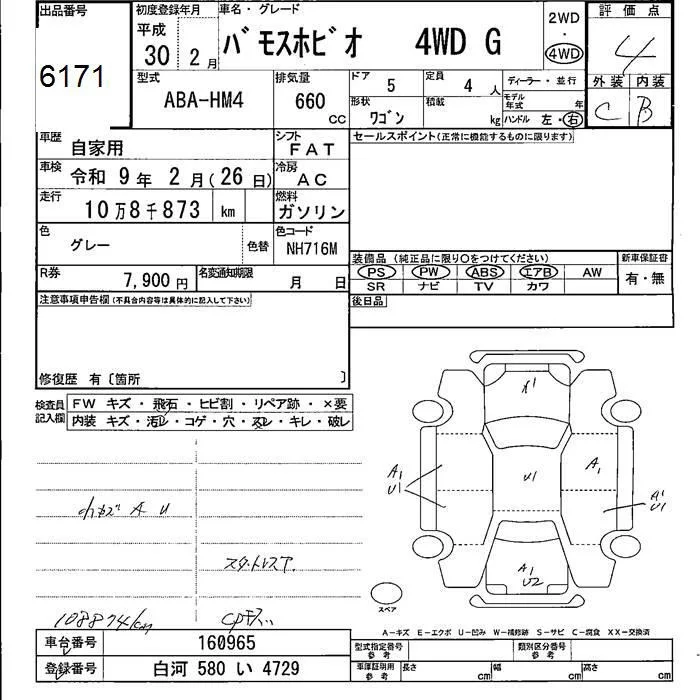 出品番号
6171
初度登録年月
平成
30年 2月
車名・グレード
バモスホビオ 4WD G
2WD
・
4WD
評価点
4
外装 内装
C B
型式
ABA-HM4
排気量
660 CC
ドア 5
定員 4 人
形状 ワゴン
積載 kg
ディーラー・並行
モデル年式 年
ハンドル 左・右
車歴 自家用
シフト FAT
車検 令和 9年 2月(26日)
冷房 AC
走行 10万8千873 km
燃料 ガソリン
色 グレー 色替
色コード NH716M
R券 7,900円
名変通知期限 月 日
セールスポイント(正常に機能するものに限ります)
装備品 (純正品に限り〇をつけてください)
PS PW ABS エアB AW
SR ナビ TV カワ
新車保証書
有・無
後日品
注意事項申告欄(不具合内容等は具体的に記入して下さい)
修復歴 有〔箇所 〕
検査員記入欄
FW キズ・飛石・ヒビ割・リペア跡・×要
内装 キズ・汚レ・コゲ・穴・スレ・キレ・破レ
小キズ A U
スタットレスア
108874km
A1
U1
X1
U1
A1
A1
U1
A1
U2
スペア
A-キズ E-エクボ U-凹み W-補修跡 S-サビ C-腐食 XX-交換済
車台番号 160965
登録番号 白河 580 い 4729
型式指定番号 参考
類別区分番号 参考
車庫証明用 参考
長さ cm
幅 cm
高さ cm